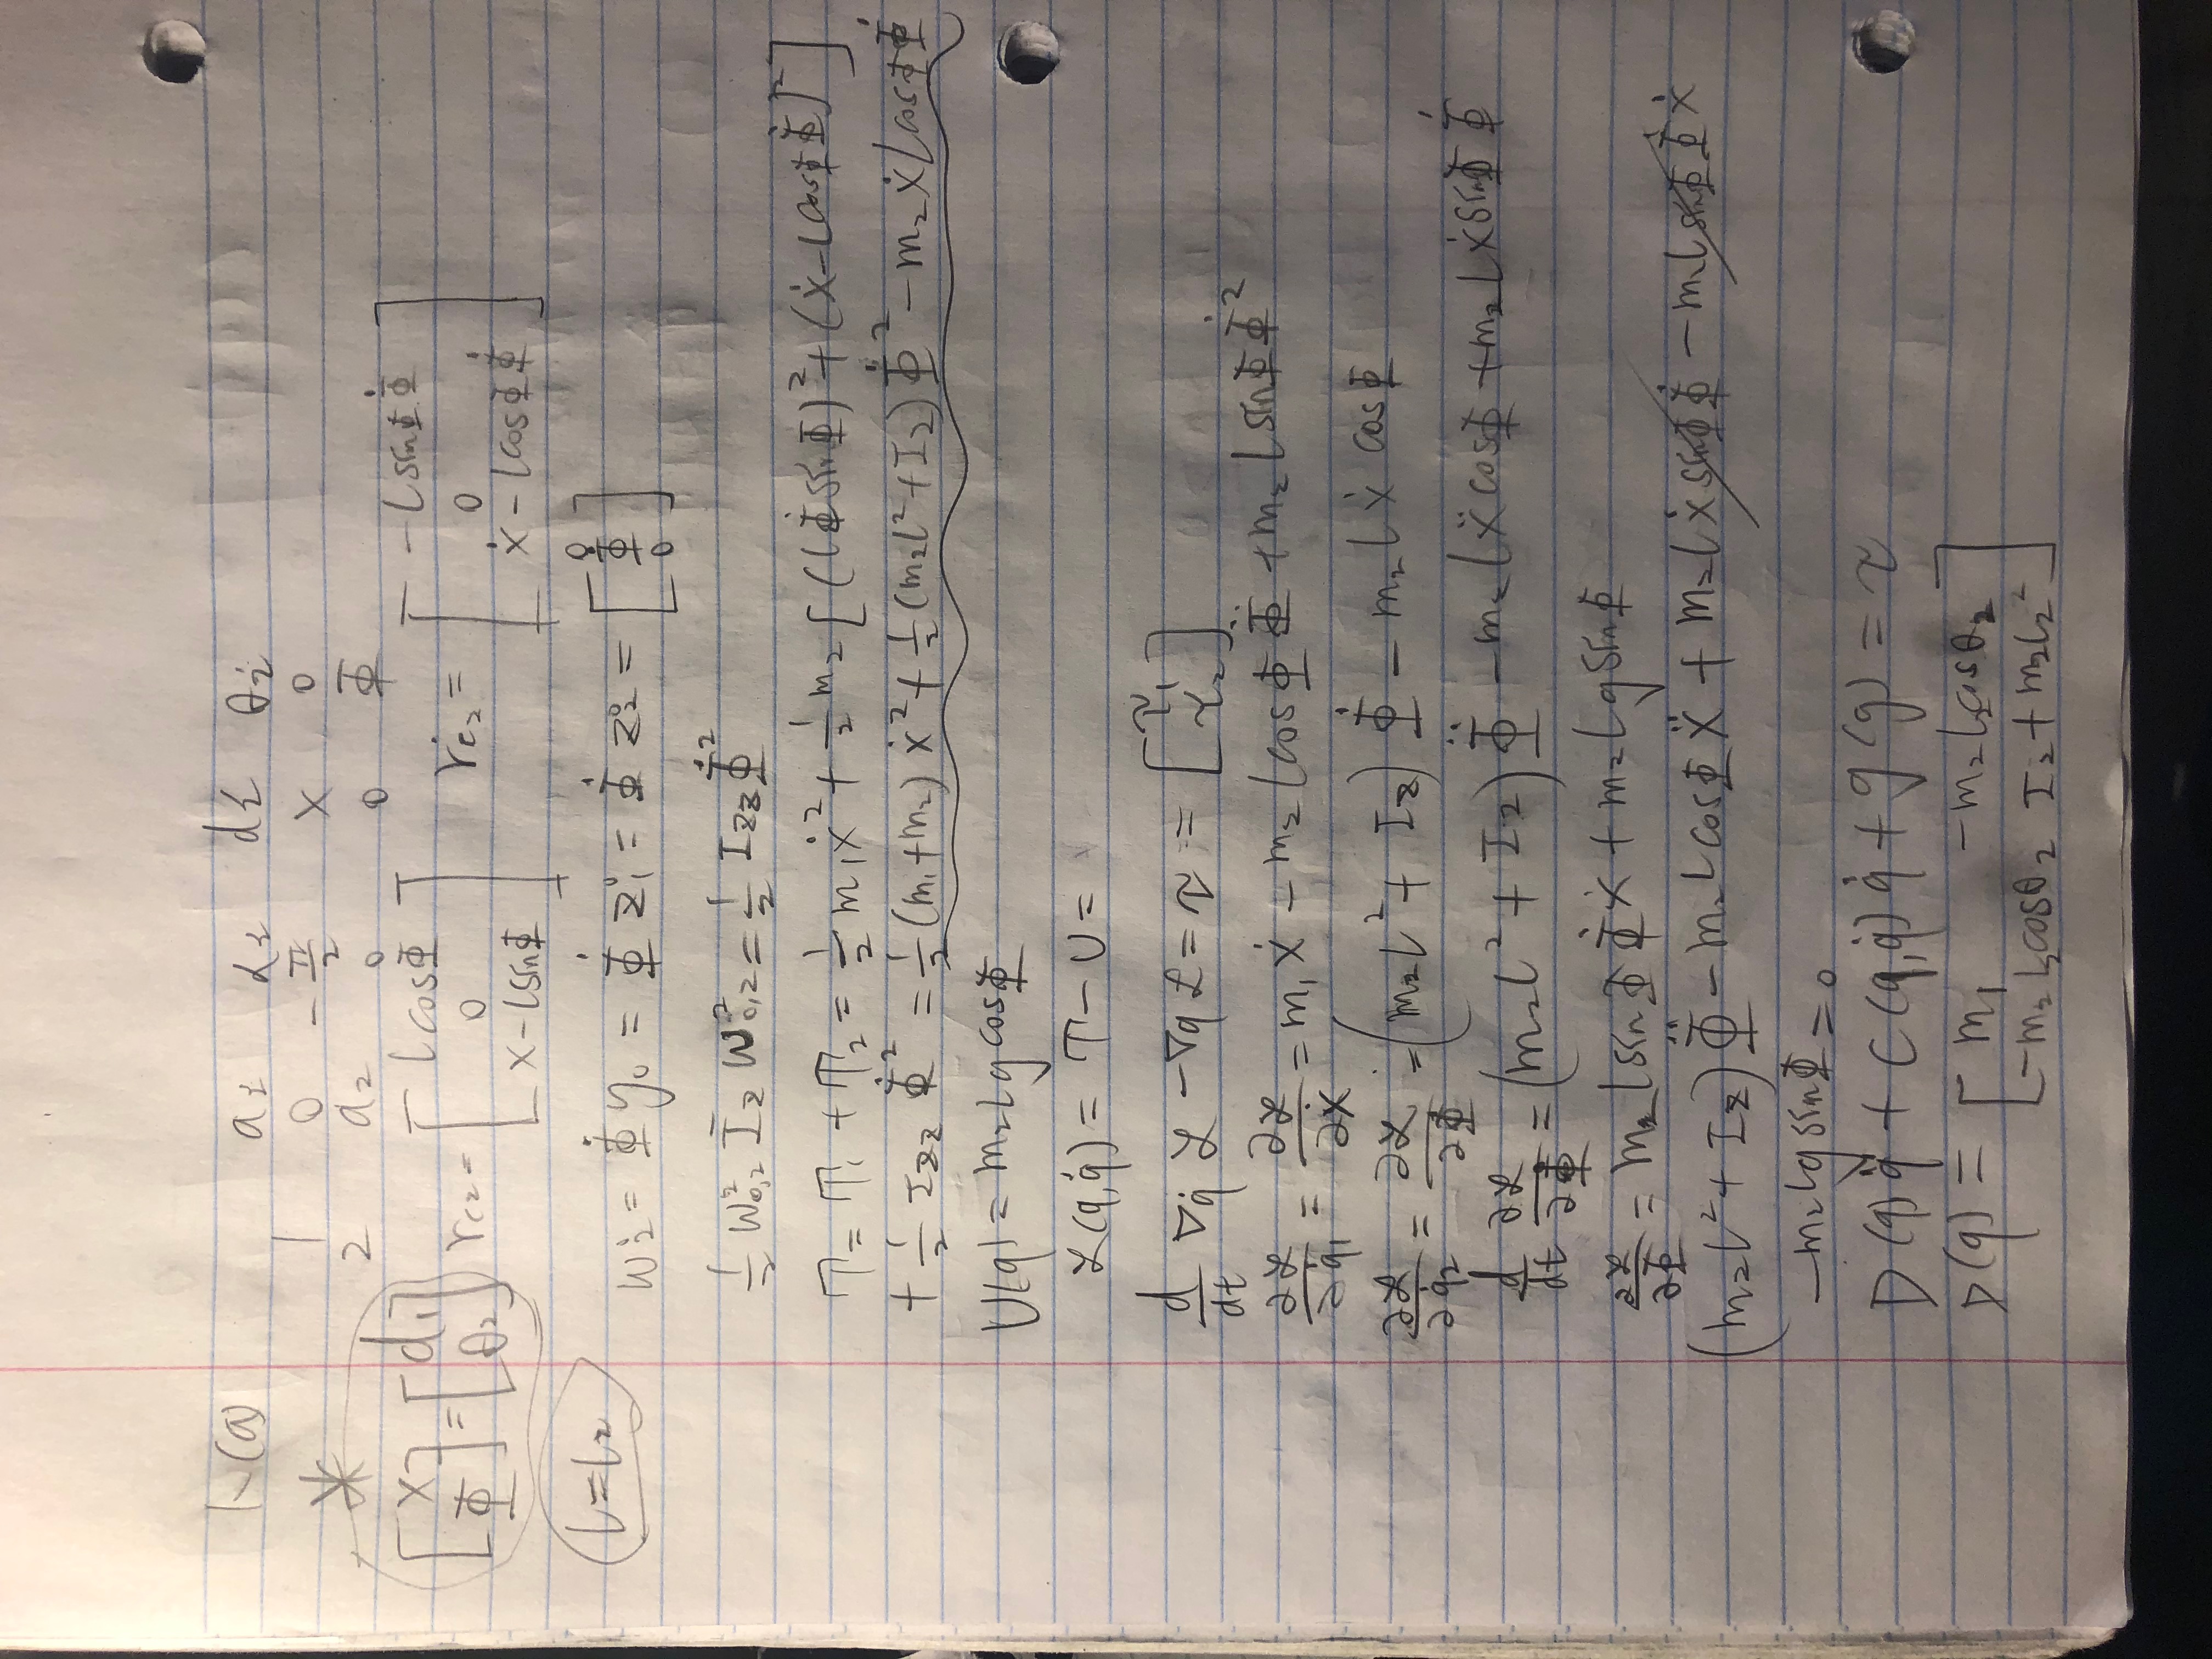 1. (a)
aᵢ αᵢ dᵢ θᵢ
1 0 -π/2 x 0
2 a₂ 0 0 Φ
*
[x; Φ] = [d₁; θ₂]
r_c2 = [l cosΦ; 0; x - l sinΦ] ṙ_c2 = [-l sinΦ Φ̇; 0; ẋ - l cosΦ Φ̇]
l = l₂
w₂⁰ = Φ̇ y₀ = Φ̇ z₁⁰ = Φ̇ z₂⁰ = [0; Φ̇; 0]
1/2 w²₀,₂ Ī₂ w²₀,₂ = 1/2 I_zz Φ̇²
T = T₁ + T₂ = 1/2 m₁ẋ² + 1/2 m₂ [(lΦ̇ sinΦ)² + (ẋ - l cosΦ Φ̇)²]
+ 1/2 I_zz Φ̇² = 1/2 (m₁+m₂) ẋ² + 1/2 (m₂l² + I₂) Φ̇² - m₂ẋ l cosΦ Φ̇
U(q) = m₂ l g cosΦ
ℒ(q,q̇) = T - U =
d/dt ∇q̇ ℒ - ∇q ℒ = τ = [τ₁; τ₂]
∂ℒ/∂q̇₁ = ∂ℒ/∂ẋ = m₁ẋ - m₂ l cosΦ Φ̈ + m₂ l sinΦ Φ̇²
∂ℒ/∂q̇₂ = ∂ℒ/∂Φ̇ = (m₂l² + I₂) Φ̇ - m₂ l ẋ cosΦ
d/dt ∂ℒ/∂Φ̇ = (m₂l² + I₂) Φ̈ - m₂ l ẍ cosΦ + m₂ l ẋ sinΦ Φ̇
∂ℒ/∂Φ = m₂ l sinΦ Φ̇ ẋ + m₂ l g sinΦ
(m₂l² + I₂) Φ̈ - m₂ l cosΦ ẍ + m₂ l ẋ sinΦ Φ̇ - m₂ l sinΦ Φ̇ ẋ
- m₂ l g sinΦ = 0
D(q)q̈ + C(q,q̇)q̇ + g(g) = τ
D(q) = [m₁ -m₂l₂cosθ₂; -m₂l₂cosθ₂ I₂ + m₂l₂²]